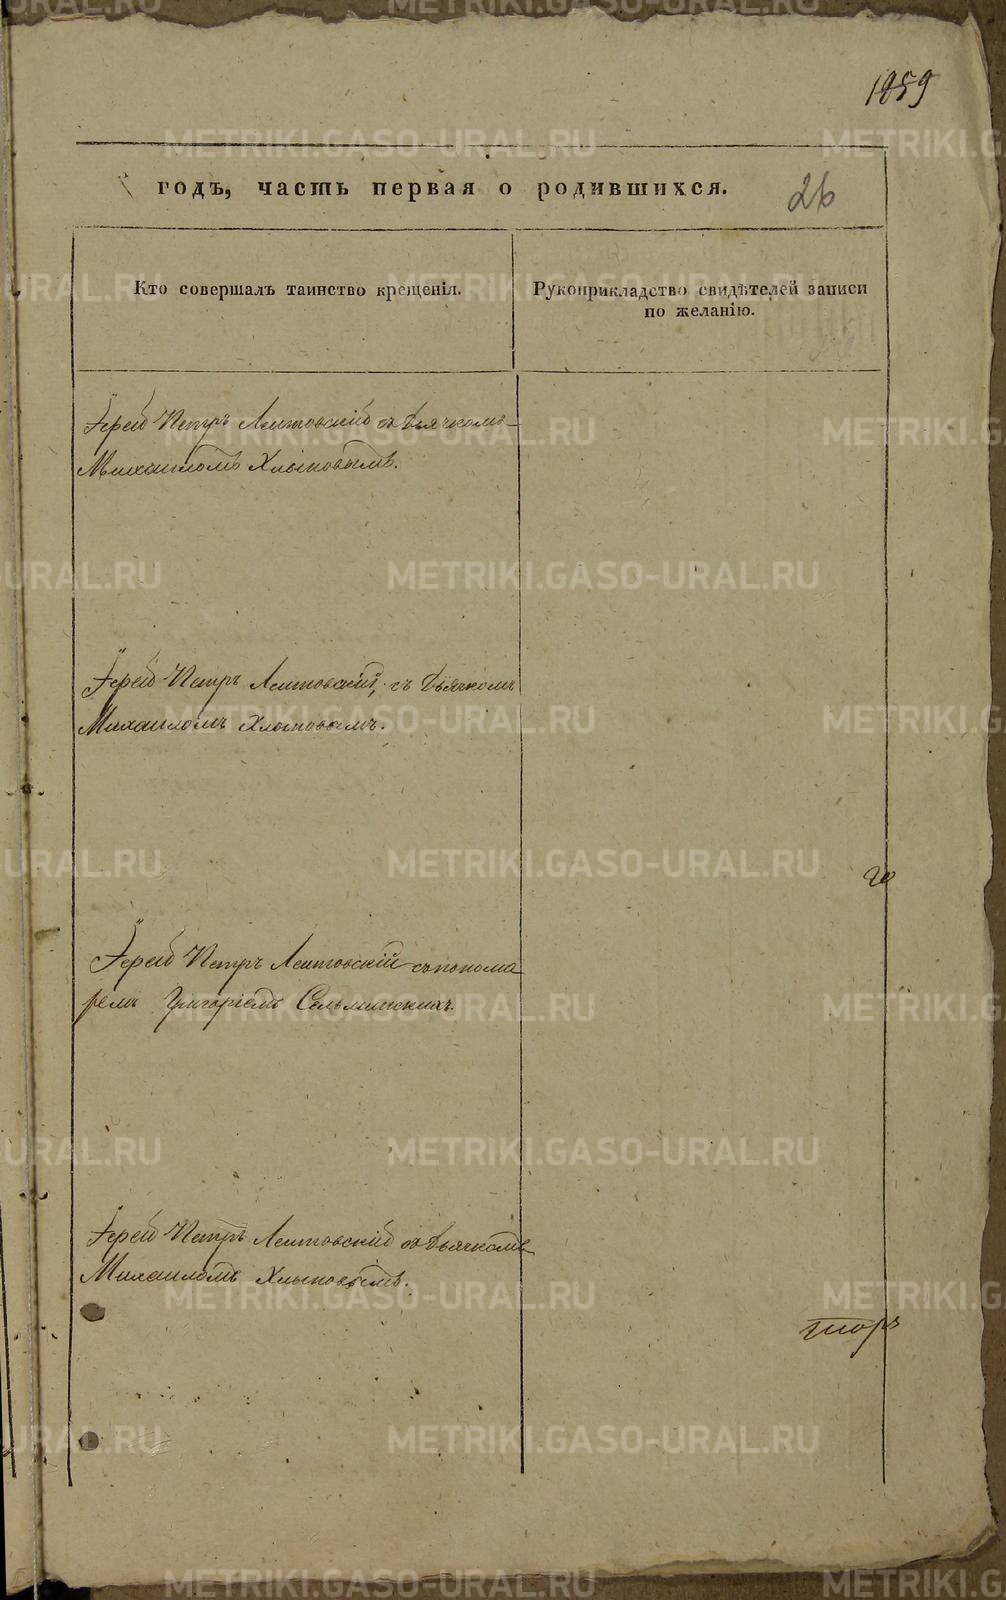 1859
годъ, часть первая о родившихся.
26
Кто совершалъ таинство крещенія.
Рукоприкладство свидѣтелей записи
по желанію.
Іерей Петръ Лептовскій съ дьячкомъ
Михаиломъ Хлыновымъ.
Іерей Петръ Лептовскій, съ дьячкомъ
Михаиломъ Хлыновымъ.
го
Іерей Петръ Лептовскій съ понома
ремъ Григоріемъ
Іерей Петръ Лептовскій съ дьячкомъ
Михаиломъ Хлыновымъ.
METRIKI.GASO-URAL.RU